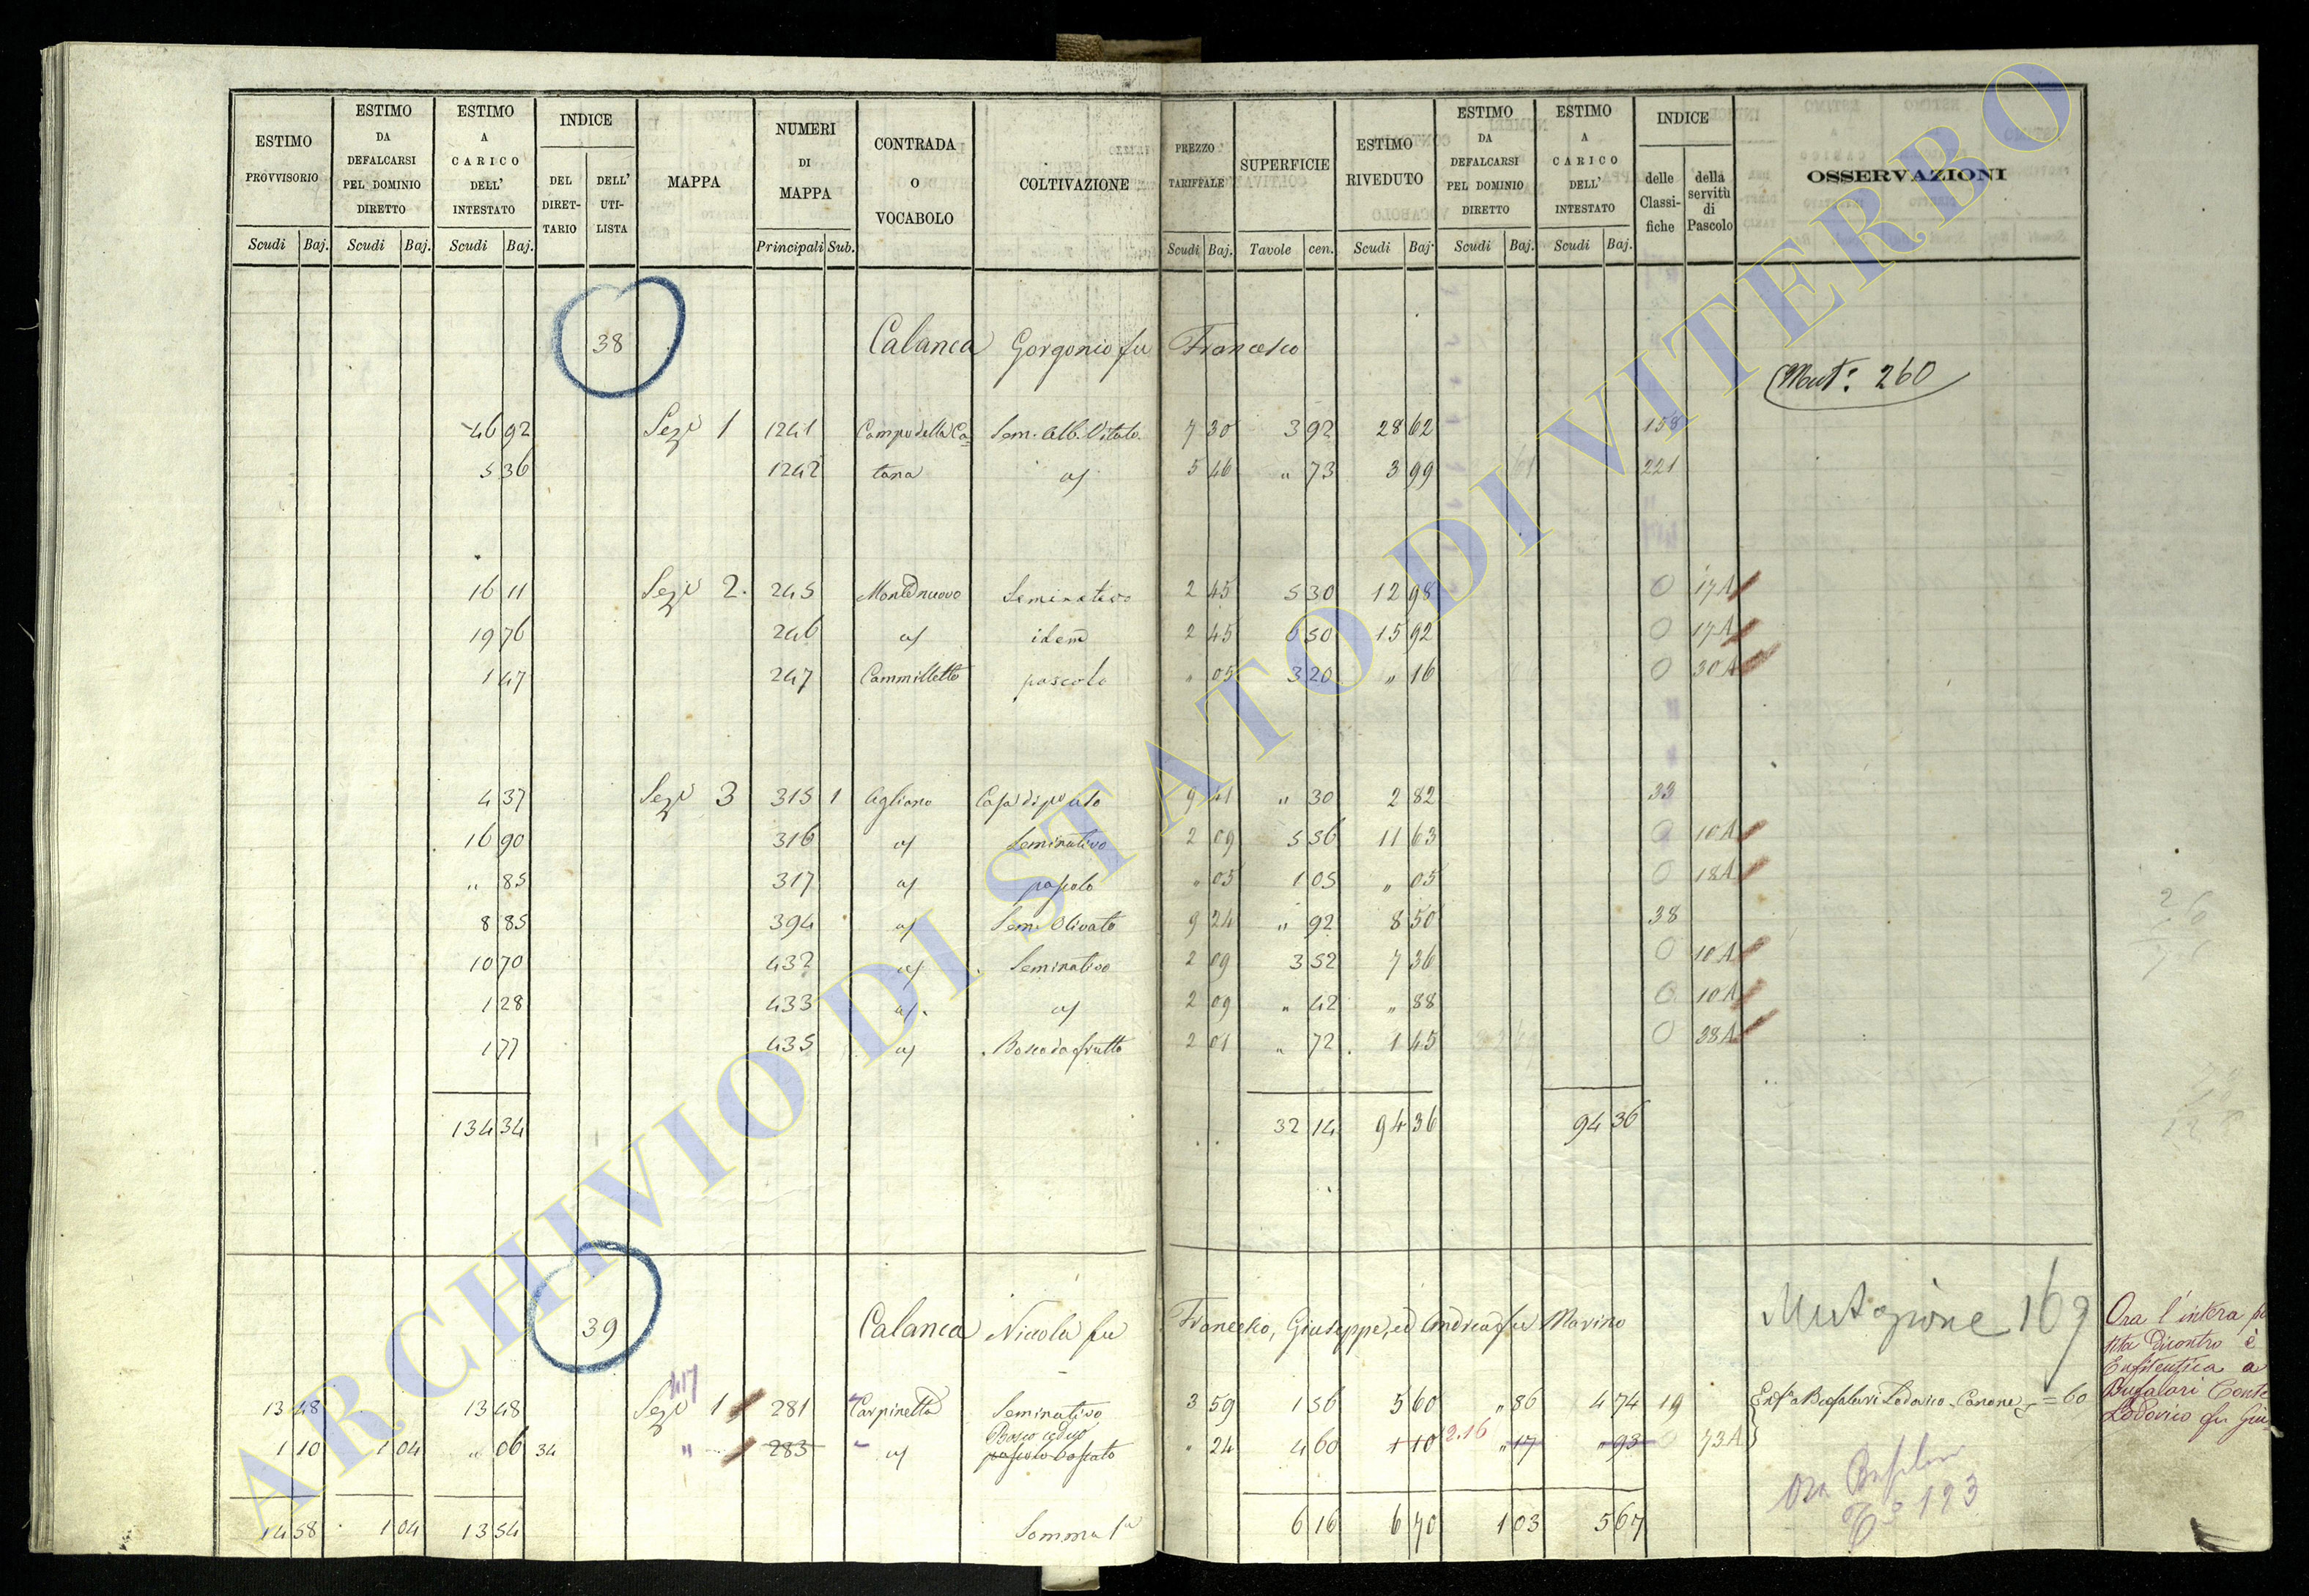 ESTIMO PROVVISORIO | ESTIMO DA DEFALCARSI PEL DOMINIO DIRETTO | ESTIMO A CARICO DELL' INTESTATO | INDICE DEL DIRET-TARIO | DELL' UTI-LISTA | MAPPA | NUMERI DI MAPPA | CONTRADA O VOCABOLO | COLTIVAZIONE | PREZZO TARIFFALE | SUPERFICIE | ESTIMO RIVEDUTO | ESTIMO DA DEFALCARSI PEL DOMINIO DIRETTO | ESTIMO A CARICO DELL' INTESTATO | INDICE delle Classi-fiche | della servitù di Pascolo | OSSERVAZIONI
Scudi | Baj. | Scudi | Baj. | Scudi | Baj. | Principali | Sub. | Scudi | Baj. | Tavole | cen. | Scudi | Baj. | Scudi | Baj. | Scudi | Baj.
38 Calanca Gorgonio fu Francesco
Mut.e 260
46 92 | Sez.e 1 | 1241 | Campo della Ca= | Sem. Alb. Vitato | 7 30 | 3 92 | 28 62 | 158
5 36 | 1242 | tana | a/ | 5 46 | " 73 | 3 99 | 221
16 11 | Sez.e 2. | 245 | Monte nuovo | Seminativo | 2 45 | 5 30 | 12 98 | 0 | 17 A
19 76 | 246 | a/ | idem | 2 45 | 6 50 | 15 92 | 0 | 17 A
1 47 | 247 | Cammilletto | pascolo | " 05 | 3 20 | " 16 | 0 | 30 A
4 37 | Sez.e 3 | 315 1 | Agliano | Casa di pp. uso | 9 41 | " 30 | 2 82 | 33
16 90 | 316 | a/ | Seminativo | 2 09 | 5 56 | 11 63 | 0 | 10 A
" 85 | 317 | a/ | pascolo | " 05 | 1 05 | " 05 | 0 | 18 A
8 85 | 394 | a/ | Sem. Olivato | 9 24 | " 92 | 8 50 | 38
10 70 | 432 | a/ | Seminativo | 2 09 | 3 52 | 7 36 | 0 | 10 A
1 28 | 433 | a/. | a/ | 2 09 | " 42 | " 88 | 0 | 10 A
1 77 | 435 | a/ | Bosco da frutto | 2 01 | " 72 | 1 45 | 0 | 38 A
134 34 | 32 14 | 94 36 | 94 36
39 Calanca Nicola fu Francesco, Giuseppe, ed Andrea fu Marino
Mutazione 169
417
13 48 | 13 48 | Sez.e 1 | 281 | Carpinetta | Seminativo | 3 59 | 1 56 | 5 60 | " 86 | 4 74 | 19 | Enf.a Bufalari Lodovico. Canone = 60
Bosco ceduo
1 10 | 1 04 | " 06 | 34 | " | 283 | a/ | pascolo boscato | " 24 | 4 60 | 1 10 | 2.16 | " 17 | " 93 | 0 | 73 A
14 58 | 1 04 | 13 54 | Somma 1a | 6 16 | 6 70 | 1 03 | 5 67
Ora l'intera
Dicontro è
Enfiteutica a
Bufalari Conte
Lodovico fu
Ora
193
ARCHIVIO DI STATO DI VITERBO